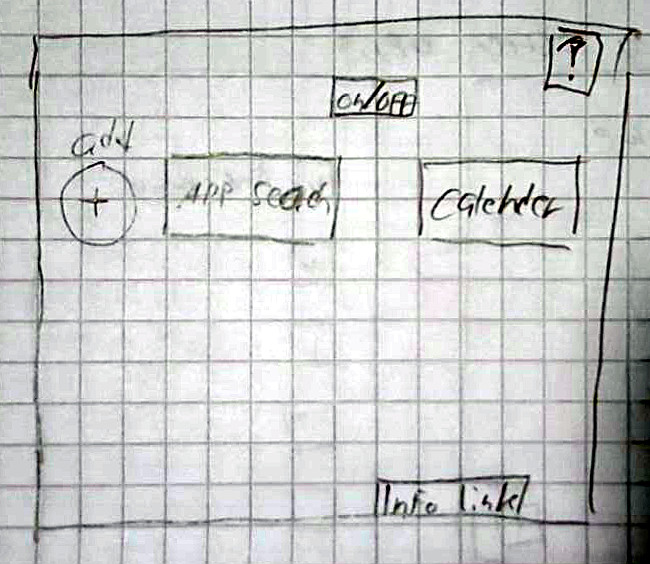 ?
ON/OFF
add
+
App Seach
Calender
Info link